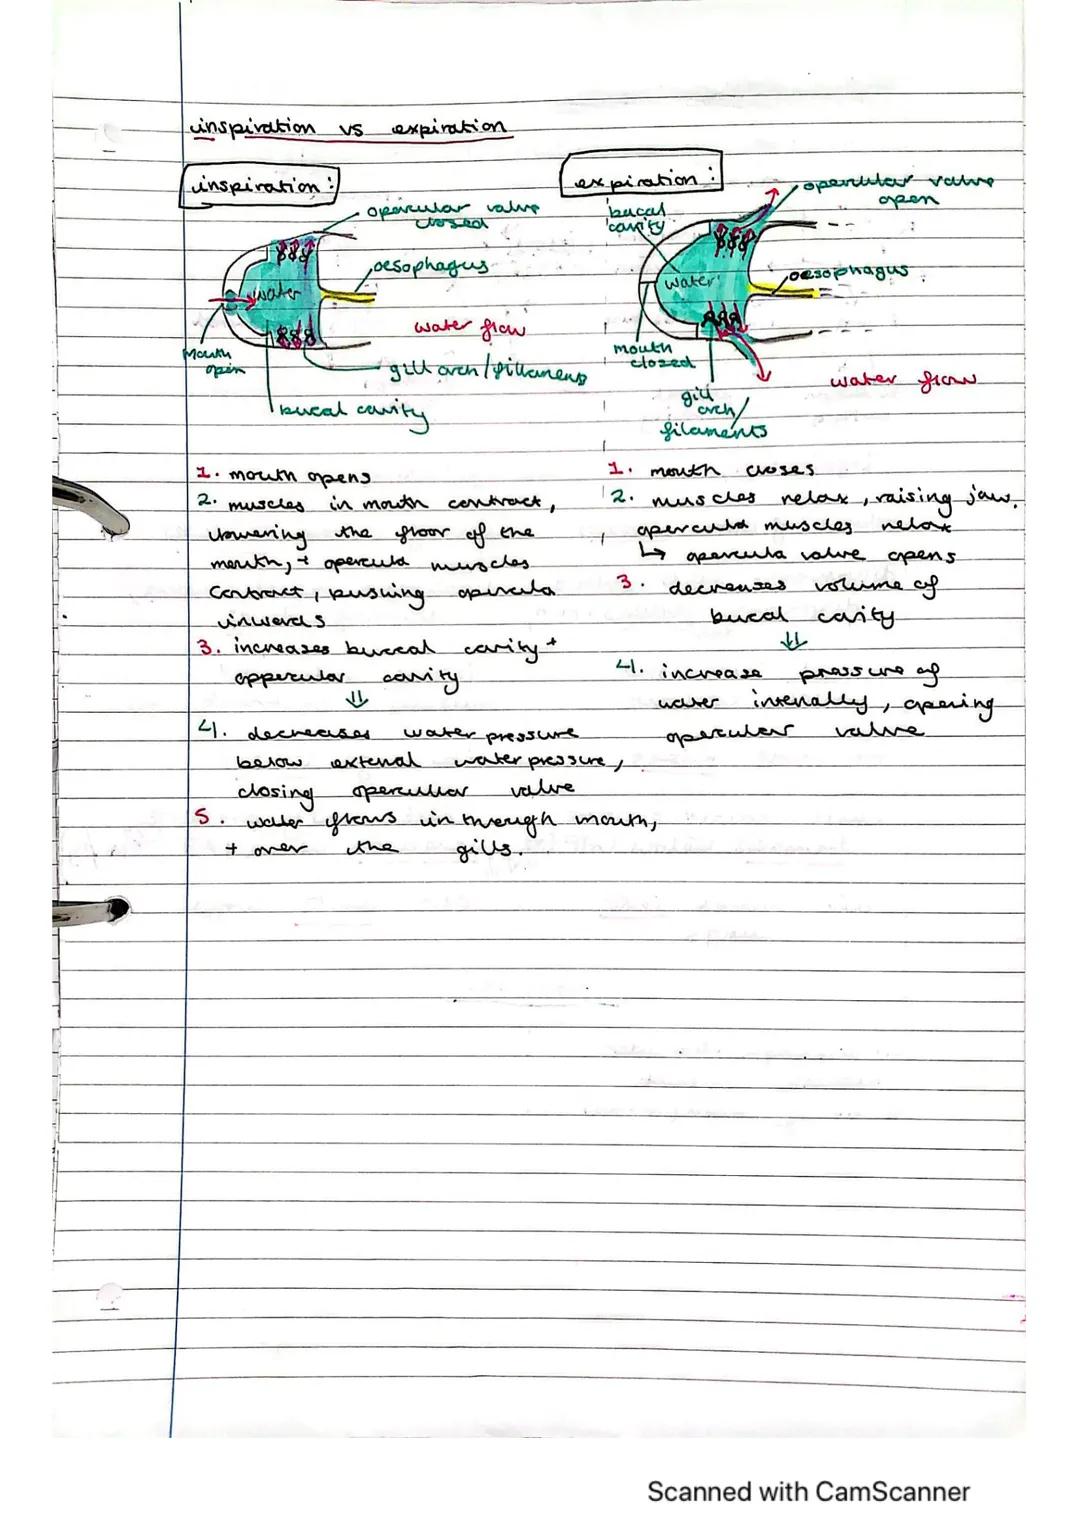 inspiration vs expiration
inspiration :
opercular valve
closed
oesophagus
water
water flow
Mouth
open
gill arch/filaments
bucal cavity
1. mouth opens
2. muscles in mouth contract,
lowering the floor of the
mouth, + opercula muscles
contract, pushing opercula
inwards
3. increases buccal cavity +
oppercular cavity
⇓
4. decreases water pressure
below external water pressure,
closing opercular valve
5. water flows in through mouth,
+ over the gills.
expiration :
opercular valve
open
bucal
cavity
water
oesophagus
mouth
closed
water flow
gill
arch/
filaments
1. mouth closes
2. muscles relax, raising jaw.
opercula muscles relax
↳ opercula valve opens
3. decreases volume of
bucal cavity
⇓
4. increase pressure of
water internally, opening
opercular valve
Scanned with CamScanner